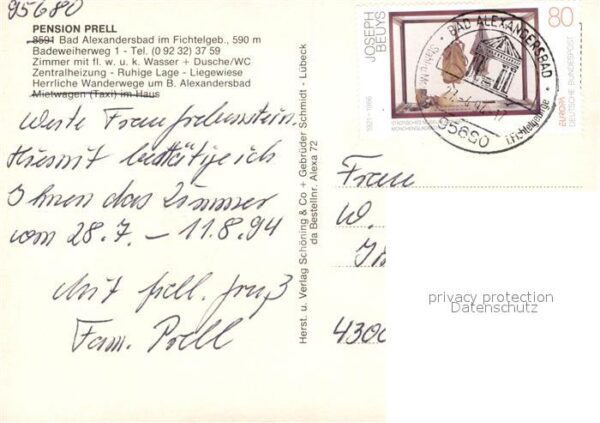 95680
PENSION PRELL
8591 Bad Alexandersbad im Fichtelgeb., 590 m
Badeweiherweg 1 - Tel. (0 92 32) 37 59
Zimmer mit fl. w. u. k. Wasser + Dusche/WC
Zentralheizung - Ruhige Lage - Liegewiese
Herrliche Wanderwege um B. Alexandersbad
Mietwagen (Taxi) im Haus
Werte Frau
Hiermit bestätige ich
Ihnen das Zimmer
vom 28.7. – 11.8.94
Mit frdl. Gruß
Fam. Prell
Herst. u. Verlag Schöning & Co + Gebrüder Schmidt - Lübeck
da Bestellnr. Alexa 72
JOSEPH
BEUYS
1921 - 1986
80
EUROPA
DEUTSCHE BUNDESPOST
BAD ALEXANDERSBAD
95680
Frau
W.
430
privacy protection
Datenschutz